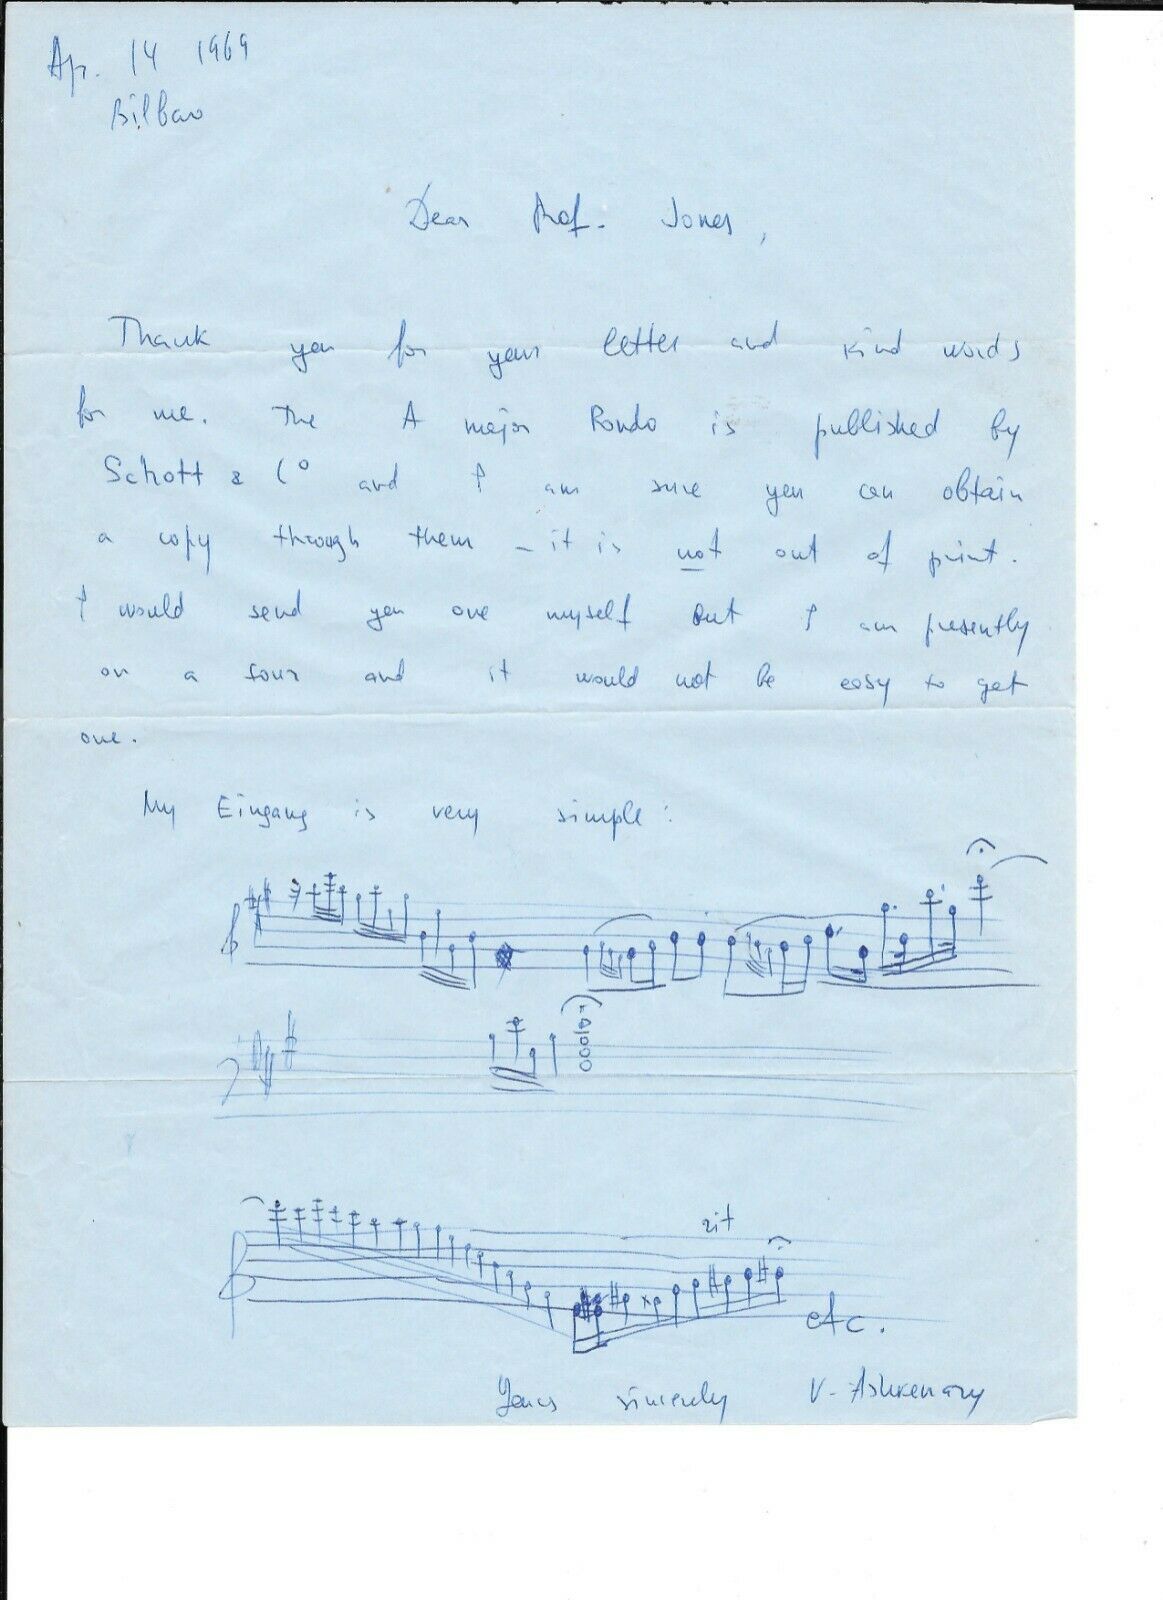 Ap. 14 1969
Bilbao
Dear Prof. Jones,
Thank you for your letter and kind words
for me. The A major Rondo is published by
Schott & Co and I am sure you can obtain
a copy through them - it is not out of print.
I would send you one myself but I am presently
on a tour and it would not be easy to get
one.
My Eingang is very simple:
rit
etc.
Yours sincerely V. Ashkenazy